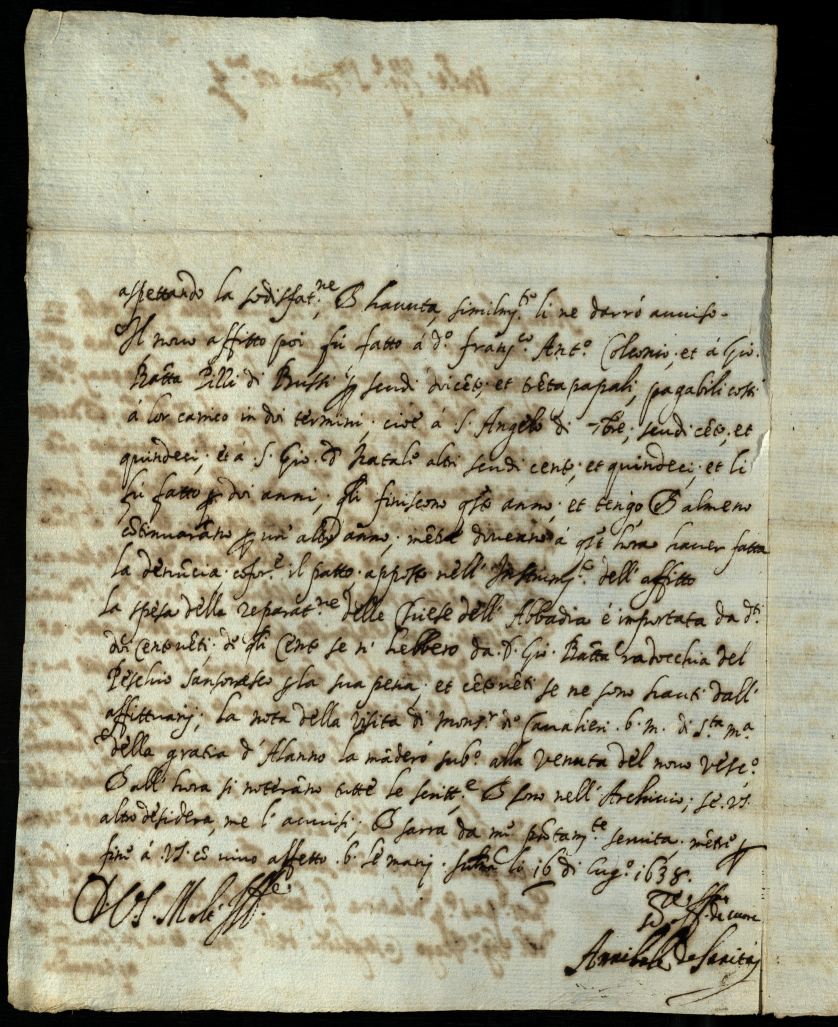 aspettando la sodisfat.ne, & havuta, similmte li ne darrò avviso.
Il novo affitto poi fù fatto á d.o franc.co Ant.o et á Gio.
Batta Pilli di Bussi scudi ducēt; et trēta papali, pagabili costi
á lor carrico in doi termini; cioè á S. Angelo di 7bre, scudi cēto, et
quindeci; et á S. Gio. d Natale altri scudi cento, et quindeci; et li
fù fatto p doi anni, qli finiscono qsto anno, et tengo almeno
cōtinuarāno p un' altro anno, á qst' hora haver fatta
la denūcia cofor.e il patto apposto nell' Instrum.to dell' affitto
la spesa della reparat.ne delle Chiese dell' Abbadia è importata da d.ti
doicento vēti; d qli Cento se n' hebbero da D. Gio. Batta radocchia del
Peschio Sansonesco p la sua pena, et cētovēti se ne sono hauti dall'
affittuarij; la nota della visita di Mons.r d.o Cavalieri b. m. di S.ta m.a
della gratia d' Alanno la māderò sub.o alla venuta del novo vesc.o
& all' hora si noterāno tutte le scritt.e & sono nell' Archivio; se VS.
altro desidera, me l' avvisi; & sarrà da me prōtam.te servita. mētre p
fine á VS. cō vivo affetto b. le mani. li 16 di lug.o 1638.
D. VS. Molt' Ill.e
di cuore
Annibale de Sanitá